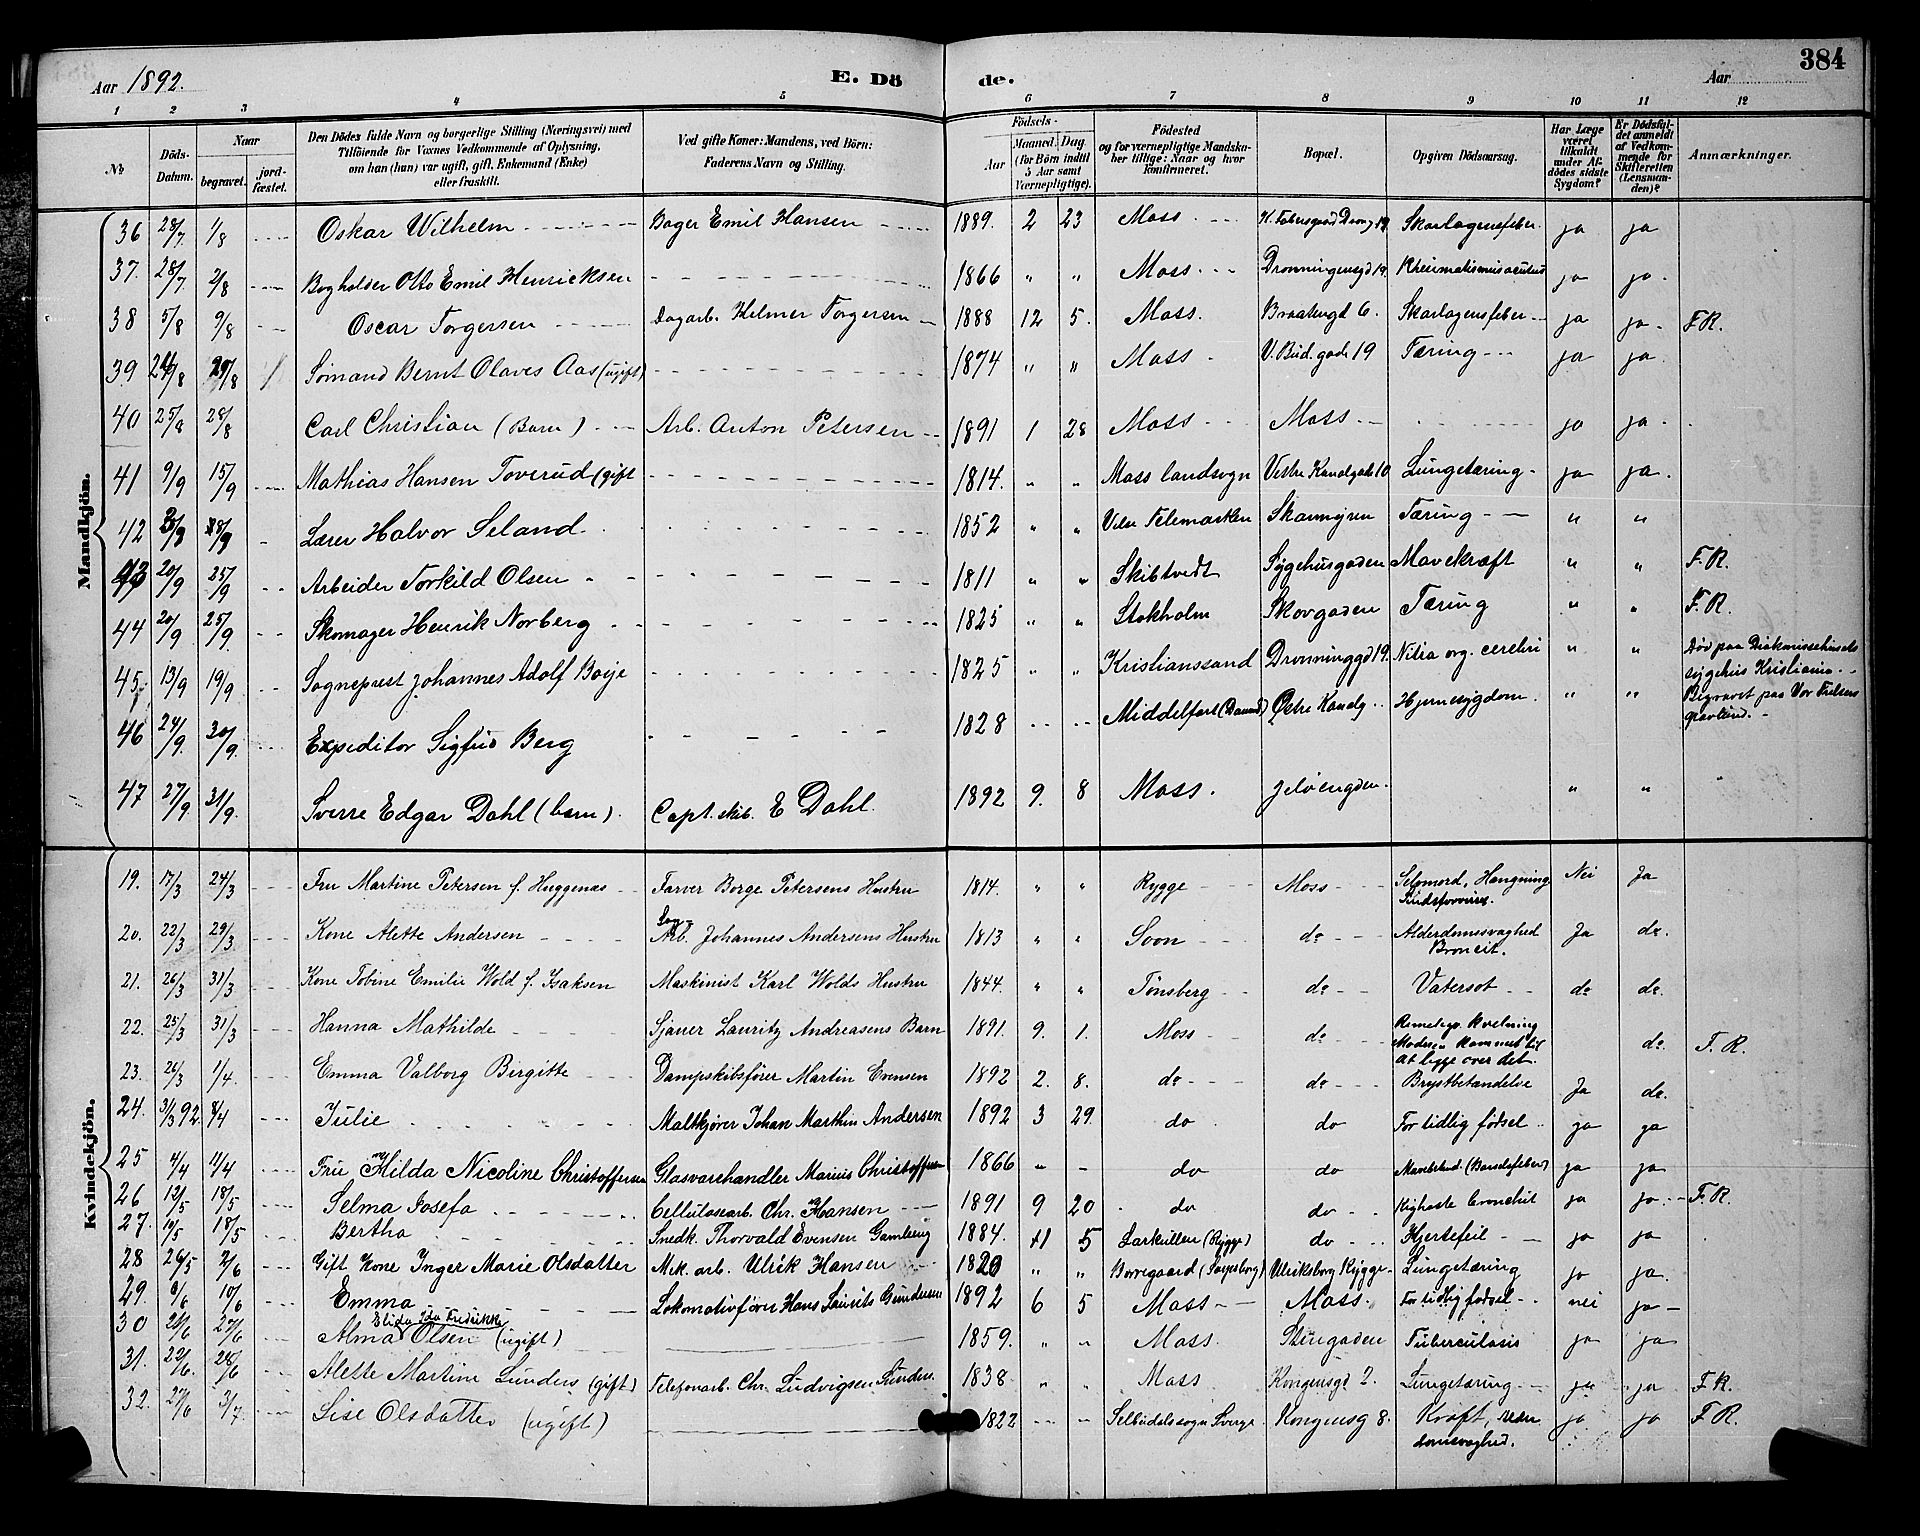 Aar 1892. E. Dö de. Aar 384
1 2 3 4 5 6 7 8 9 10 11 12
№ Döds-Datum. Naar begravet. jord-fæstet. Den Dödes fulde Navn og borgerlige Stilling (Næringsvei) med Tilföiende for Voxnes Vedkommende af Oplysning, om han (hun) var ugift, gift, Enkemand (Enke) eller fraskilt. Ved gifte Koner: Mandens, ved Börn: Faderens Navn og Stilling. Födsels- Aar Maaned. Dag. (for Börn indtil 5 Aar samt Værnepligtige). Födested og for værnepligtige Mandskaber tillige: Naar og hvor konfirmeret. Bopæl. Opgiven Dödsaarsag. Har Læge været tilkaldt under Afdödes sidste Sygdom? Er Dödsfaldet anmeldt af Vedkommende for Skifteretten (Lensmanden)? Anmærkninger.
Mandkjön.
36 28/7 1/8 Oskar Wilhelm Bager Emil Hansen 1889. 2 23 Moss Skarlagensfeber ja ja
37. 28/7. 2/8 Bogholder Otto Emil Henricksen 1866 " " Moss Dronningensgd 19. Rheumatismus acutus ja ja.
38 5/8 9/8 Oscar Torgersen Dagarb. Helmer Torgersen 1888 12 5. Moss. Braatengd 6. Skarlagensfeber ja ja. F.R.
39 24/8 29/8 Sömand Bernt Olaves Aas (ugift) 1874 " " Moss. V. Bud. gade 19 Tæring ja ja.
40 25/8 28/8 Carl Christian (Barn) Arb. Anton Petersen 1891 1 28 Moss Moss ja ja.
41 9/9 15/9 Mathias Hansen Toverud (gift 1814. " " Moss landsogn Vestre Kanalgade 10 Lungetæring ja ja.
42 Lærer Halvor Seland. 1852 " " Telemarken Tæring " "
43 20/9 25/9 Arbeider Torkild Olsen 1811 " " Skibtvedt Sygehusgaden Mavekræft " " F.R.
44 20/9 25/9 Skomager Henrik Norberg 1825 " " Stokholm Skovgaden Tæring " " F.R.
45. 13/9 19/9 Sogneprest Johannes Adolf Boije 1825 " " Kristianssand Dronninggd 19. Vitia org. cerebri " " Död paa Diakonissehusets sygehus Kristiania. Begravet paa Vor Frelsers gravlund.
46 24/9. 30/9. Expeditör Sigfus Berg 1828 Middelfart (Danm) Østre Kanalg. Hjernesygdom. " "
47 27/9. 31/9. Sverre Edgar Dahl (barn). Capt. skib. E Dahl. 1892 9. 8 Moss. Jelöengden. " "
Kvindekjön.
19. 17/3 24/3 Fru Martine Petersen f. Huggenas Farver Borge Petersens Hustru 1814. " " Rygge Moss Selvmord, Hængning Sindsforvirr. Nei Ja
20. 22/3 29/3 Kone Alette Andersen Dag- Arb. Johannes Andersens Hustru 1813 " " Soon do Alderdomssvaghed Broncit. Ja do.
21. 26/3 31/3 Kone Tobine Emilie Wold f. Isaksen Maskinist Karl Wolds Hustru 1844. " " Tönsberg do Vatersot do do.
22. 25/3 31/3 Hanna Mathilde Sjauer Lauritz Andreasens Barn 1891. 9. 1. Moss do kvelning Moderen kommet til at ligge over det. do. F.R.
23. 26/3 1/4. Emma Valborg Birgitte Dampskibsförer Martin Evensen 1892 2. 8. do do Brystbetændelse Ja do.
24. 31/3 92. 8/4 Julie Maltkjører Johan Marthin Andersen 1892 3 29. do do For tidlig fødsel ja ja
25 4/4 11/4 Fru Hilda Nicoline Christoffersen Glasvarehandler Marius Christoffersen 1866 " - do do (Barselfeber) ja ja
26 12/5 18/5 Selma Josefa Cellulosearb. Chr. Hansen 1891 9 20 do do Kighoste bronchit ja ja. F.R.
27. 14/5 18/5 Bertha Snedk. Thorvald Evensen Gamberg 1884. 11 5 Larkullen (Rygge) do Hjertefeil ja ja
28 26/5 2/6 Gift Kone Inger Marie Olsdatter Mek. arb. Ulrik Hansen 1820 " " Borregaard (Sarpsborg) Ulriksborg Rygge Lungetæring ja ja.
29. 6/6 10/6 Emma Lokomotivförer Hans Laurits Gundersen 1892 6 5 Moss Moss. For tidlig fødsel nei ja
30 21/6 27/6 Alma Elida Ida Fredrikke Olsen (ugift) 1859. " " Moss Stengaden Tuberculosis ja ja
31. 22/6 28/6 Alette Martine Lunder (gift) Telefonarb. Chr. Ludvigsen Lunder. 1838 " " Moss Kongensgd 2. Lungetæring ja ja F.R.
32. 27/6 3/7 Lise Olsdatter (ugift) 1822 Sverge Kongensg 8. Kræft, Alderdomsvaghed. ja ja F.R.